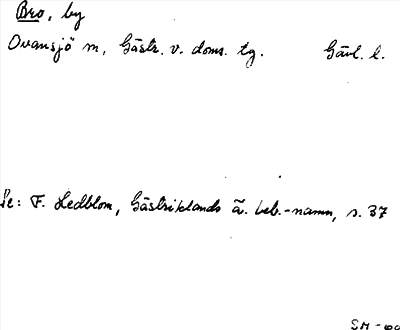 Bro, by
Ovansjö sn, Gästr. v. doms. tg. Gävl. l.
Se: F. Hedblom, Gästriklands ä. beb.-namn, s. 37
SM-60